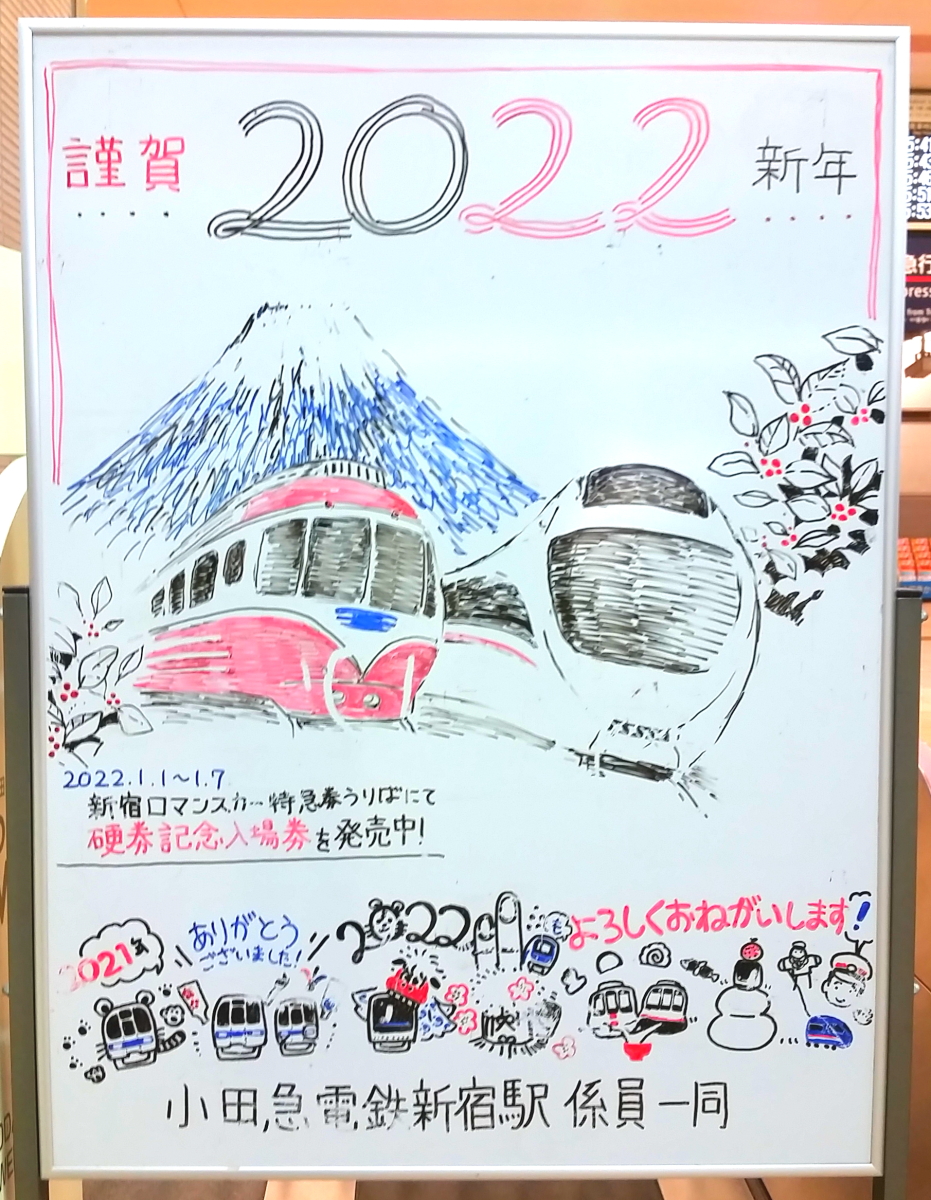 謹賀 2022 新年
2022.1.1~1.7
新宿ロマンスカー特急券うりばにて
硬券記念入場券を発売中!
2021年
ありがとう
ございました!
2022も
よろしくおねがいします!
小田急電鉄新宿駅 係員一同
急行